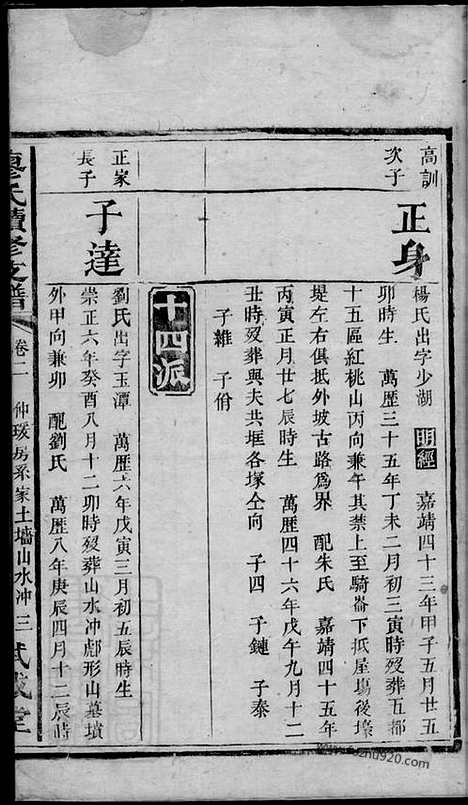 高訓
次子
正身
楊氏出字少湖 明經 嘉靖四十三年甲子五月廿五
卯時生 萬歷三十五年丁未二月初三寅時歿葬五都
十五區紅桃山丙向兼午其禁上至騎崙下抵屋場後
堤左右俱抵外坡古路爲界 配朱氏 嘉靖四十五年
丙寅正月廿七辰時生 萬歷四十六年戊午九月十二
丑時歿葬與夫共堆各塜仝向 子四 子鏈 子泰
子雒 子俏
十四派
正家
長子
子達
劉氏出字玉潭 萬歷六年戊寅三月初五辰時生
崇正六年癸酉八月十二卯時歿葬山水冲形山墓墳
外甲向兼卯 配劉氏 萬歷八年庚辰四月十二辰時
廖氏續修支譜
卷二
仲瑗房系家土墻山水冲
三
武威堂
www.jiapu920.com